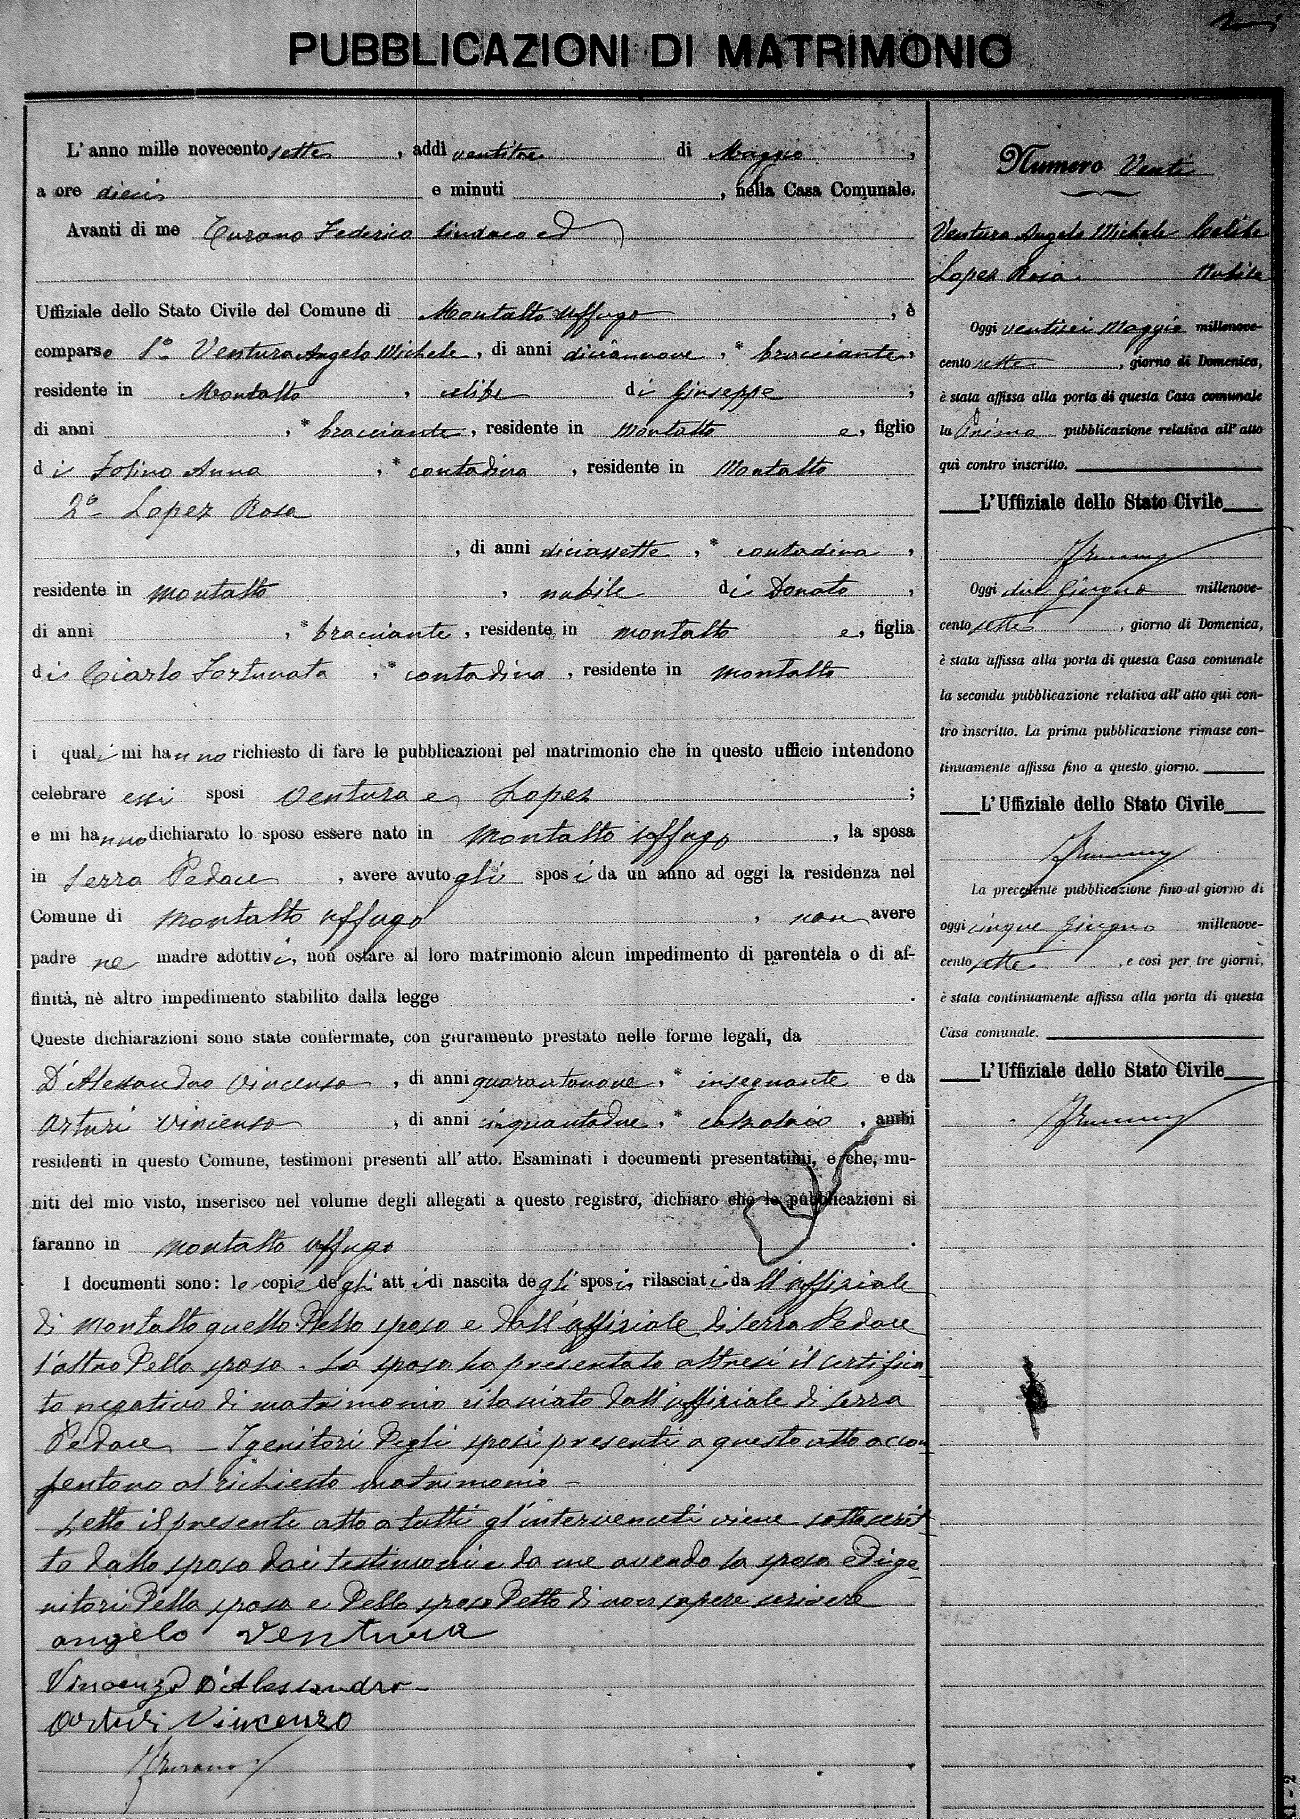 PUBBLICAZIONI DI MATRIMONIO
L'anno mille novecento sette, addì ventitre di Maggio,
a ore dieci e minuti , nella Casa Comunale.
Avanti di me Turano Federico Sindaco ed
Uffiziale dello Stato Civile del Comune di Montalto Uffugo, è
comparse 1° Ventura Angelo Michele, di anni diciannove, * bracciante,
residente in Montalto, celibe di Giuseppe;
di anni , * bracciante, residente in Montalto e, figlio
di Anna, * contadina, residente in Montalto
2° Lopez Rosa
, di anni diciassette, * contadina,
residente in Montalto, nubile di Donato,
di anni , * bracciante, residente in Montalto e, figlia
di Ciarlo Fortunata, * contadina, residente in Montalto
i quali mi hanno richiesto di fare le pubblicazioni pel matrimonio che in questo ufficio intendono
celebrare essi sposi Ventura e Lopez;
e mi hanno dichiarato lo sposo essere nato in Montalto Uffugo, la sposa
in Serra Pedace, avere avuto gli sposi da un anno ad oggi la residenza nel
Comune di Montalto Uffugo, non avere
padre ne madre adottivi, non ostare al loro matrimonio alcun impedimento di parentela o di af-
finità, nè altro impedimento stabilito dalla legge .
Queste dichiarazioni sono state confermate, con giuramento prestato nelle forme legali, da
D'Alessandro Vincenzo, di anni quarantanove, * insegnante e da
Arturi Vincenzo, di anni cinquantadue, * calzolaio, ambi
residenti in questo Comune, testimoni presenti all'atto. Esaminati i documenti presentatimi, e che, mu-
niti del mio visto, inserisco nel volume degli allegati a questo registro, dichiaro che le pubblicazioni si
faranno in Montalto Uffugo.
I documenti sono: le copie degli atti di nascita degli sposi rilasciati dall'uffiziale
di Montalto quello dello sposo e dall'uffiziale di Serra Pedace
l'altro della sposa. La sposa ha presentato altresì il certifica
to negativo di matrimonio rilasciato dall'uffiziale di Serra
Pedace – I genitori degli sposi presenti a questo atto accon
sentono al richiesto matrimonio –
Letto il presente atto a tutti gl'intervenuti viene sottoscrit
to dallo sposo dai testimoni e da me avendo la sposa e i ge
nitori della sposa e dello sposo detto di non sapere scrivere
angelo Ventura
Vincenzo D'Alessandro
Arturi Vincenzo
FTurano
Numero Venti
Ventura Angelo Michele Celibe
Lopez Rosa Nubile
Oggi ventisei Maggio millenove-
cento sette, giorno di Domenica,
è stata affissa alla porta di questa Casa comunale
la Prima pubblicazione relativa all'atto
quì contro inscritto.
L'Uffiziale dello Stato Civile
FTurano
Oggi due Giugno millenove-
cento sette, giorno di Domenica,
è stata affissa alla porta di questa Casa comunale
la seconda pubblicazione relativa all'atto quì con-
tro inscritto. La prima pubblicazione rimase con-
tinuamente affissa fino a questo giorno.
L'Uffiziale dello Stato Civile
FTurano
La precedente pubblicazione fino al giorno di
oggi cinque Giugno millenove-
cento sette, e così per tre giorni,
è stata continuamente affissa alla porta di questa
Casa comunale.
L'Uffiziale dello Stato Civile
FTurano